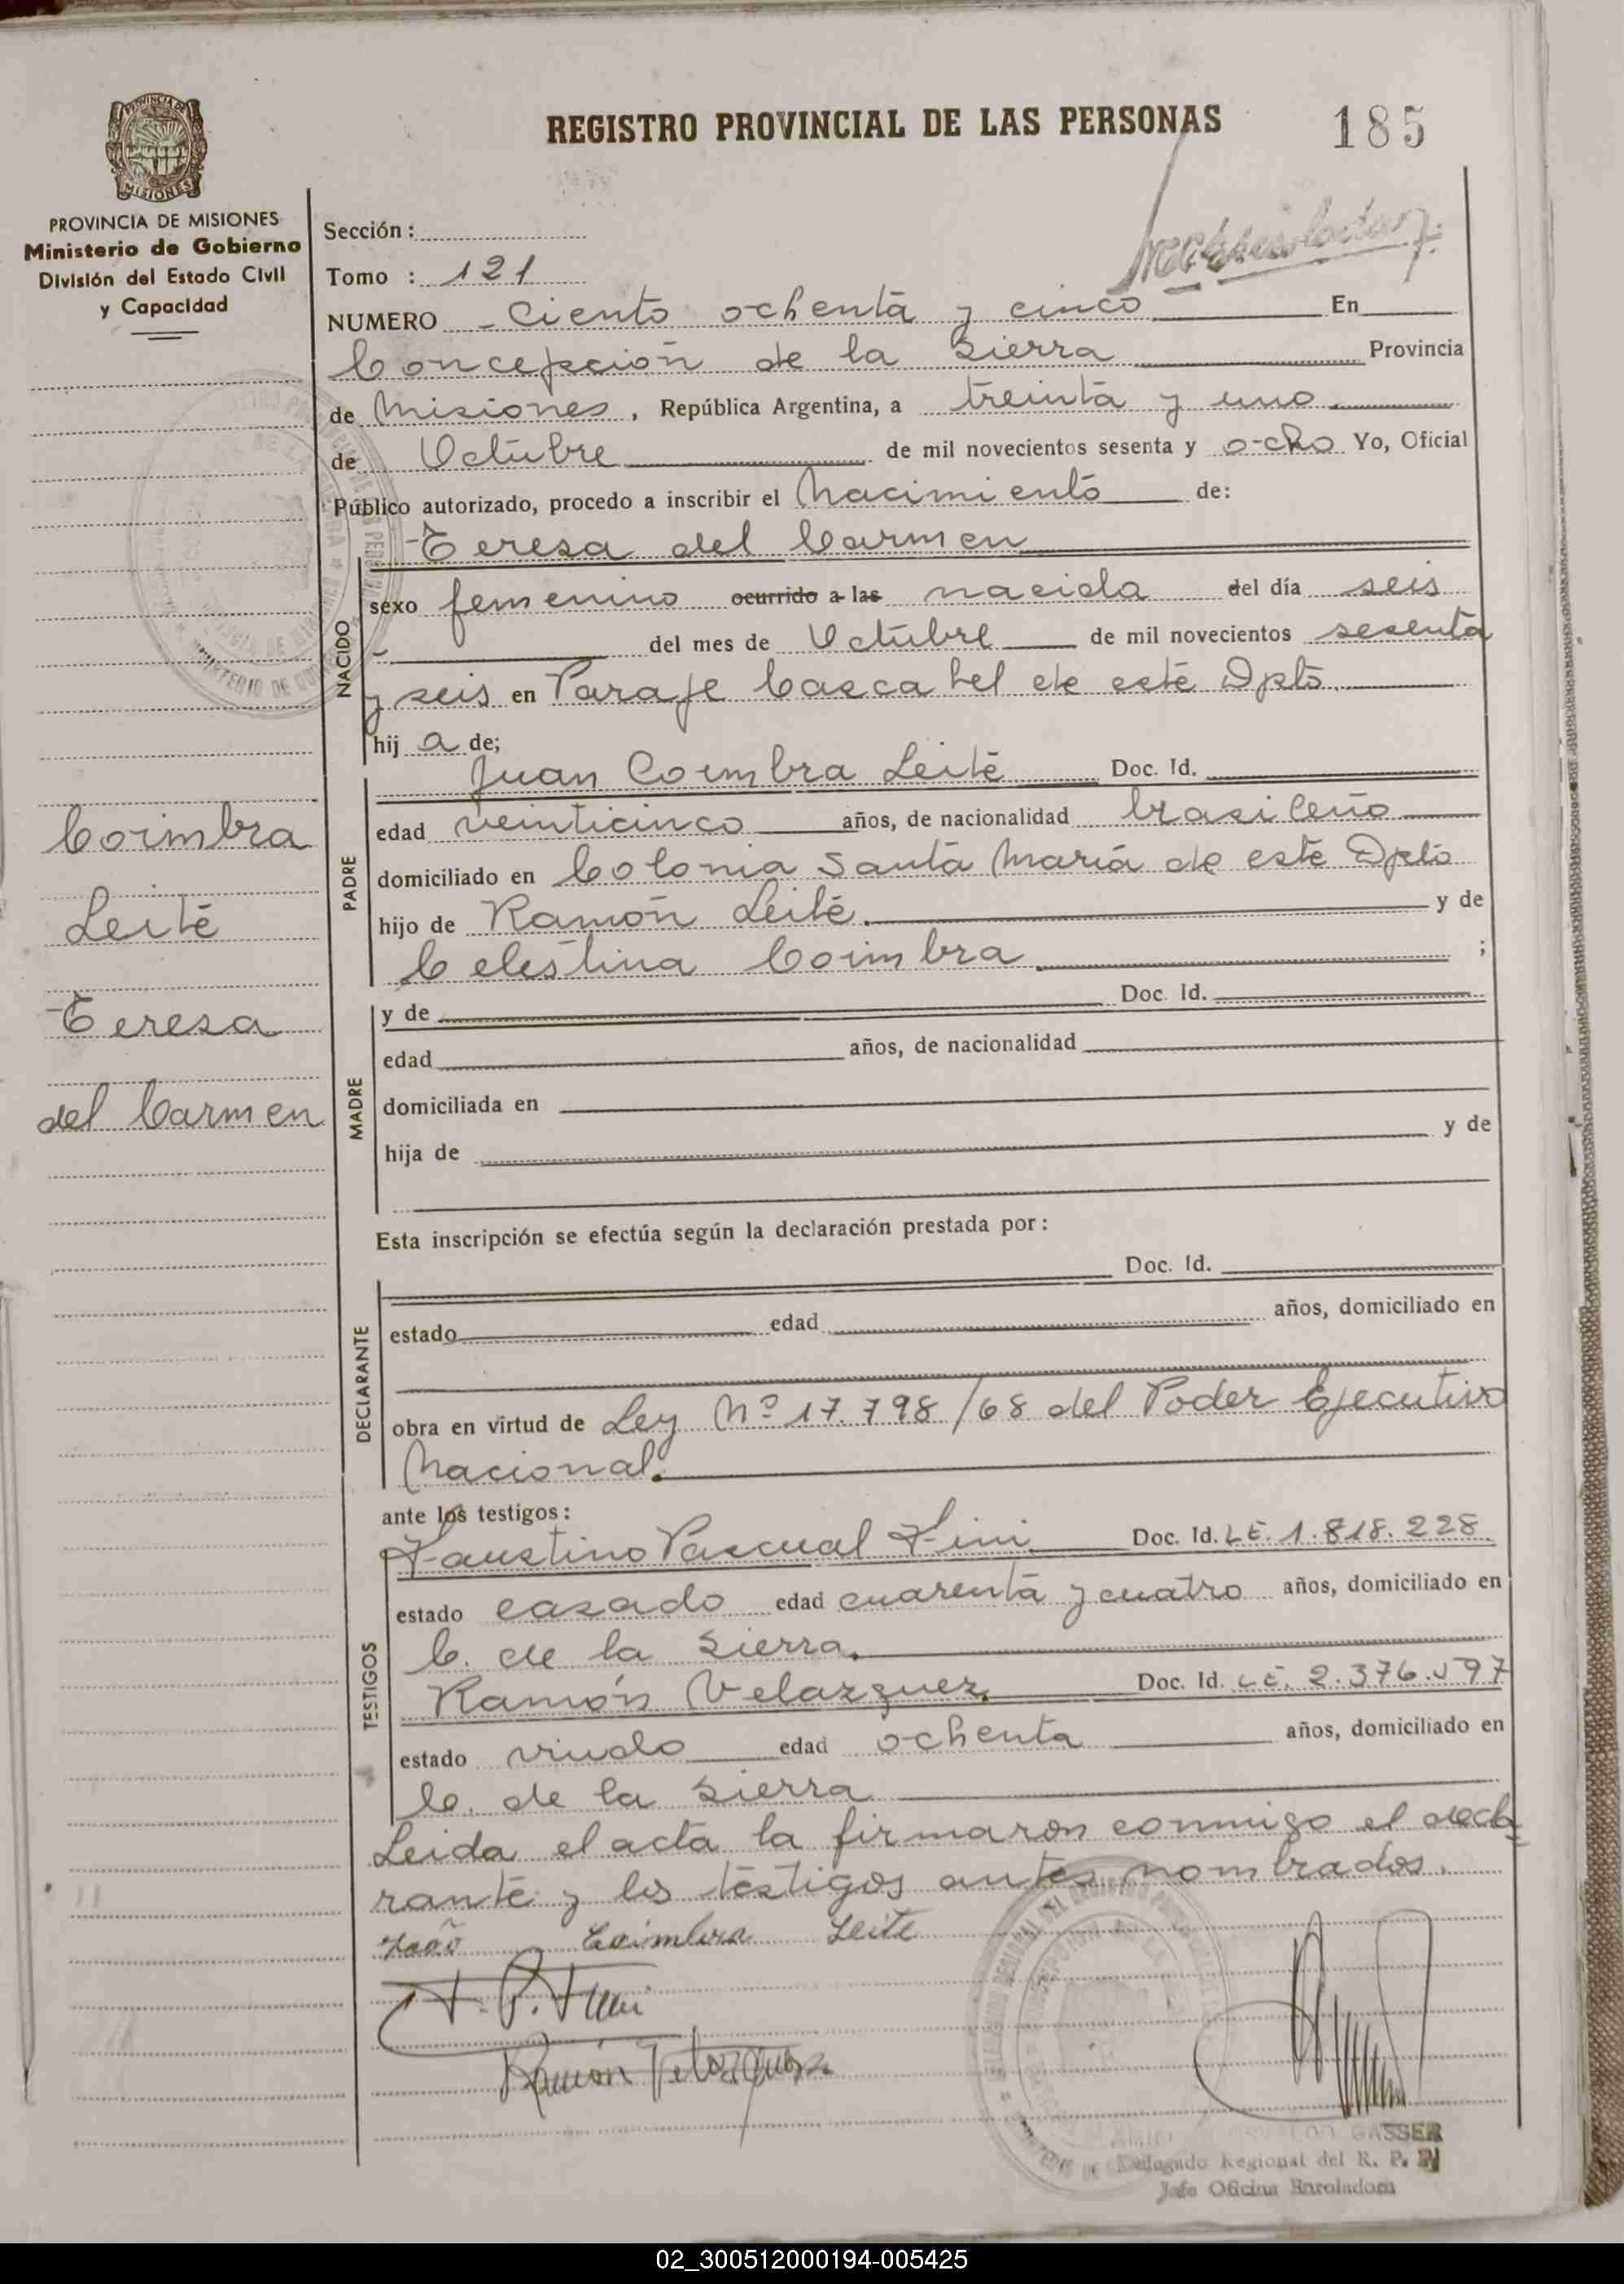 REGISTRO PROVINCIAL DE LAS PERSONAS
185
PROVINCIA DE MISIONES
Ministerio de Gobierno
División del Estado Civil
y Capacidad
Sección:
Tomo : 121
NUMERO - Ciento ochenta y cinco En
Concepción de la Sierra Provincia
de Misiones, República Argentina, a treinta y uno
de Octubre de mil novecientos sesenta y ocho Yo, Oficial
Público autorizado, procedo a inscribir el Nacimiento de:
Teresa del Carmen
NACIDO
sexo femenino ocurrido a las nacida del día seis
del mes de Octubre de mil novecientos sesenta
y seis en Paraje Cascabel de este Dpto.
hij a de;
PADRE
Juan Coimbra Leite Doc. Id.
edad veinticinco años, de nacionalidad brasileño
domiciliado en Colonia Santa María de este Dpto
hijo de Ramón Leite. y de
Celestina Coimbra ;
MADRE
y de Doc. Id.
edad años, de nacionalidad
domiciliada en
hija de y de
Coimbra
Leite
Teresa
del Carmen
Esta inscripción se efectúa según la declaración prestada por:
DECLARANTE
Doc. Id.
estado edad años, domiciliado en
obra en virtud de Ley Nº 17.798/68 del Poder Ejecutivo
Nacional.
ante los testigos:
TESTIGOS
Faustino Pascual Fini Doc. Id. LE. 1.818.228
estado casado edad cuarenta y cuatro años, domiciliado en
C. de la Sierra.
Ramón Velazquez Doc. Id. LE. 2.376.597
estado viudo edad ochenta años, domiciliado en
C. de la Sierra
Leida el acta la firmaron conmigo el decla-
rante y los testigos antes nombrados.
João Coimbra Leite
F. P. Fini
Ramón Velazquez
GASSER
Delegado Regional del R. P. P.
Jefe Oficina Enroladora
02_300512000194-005425